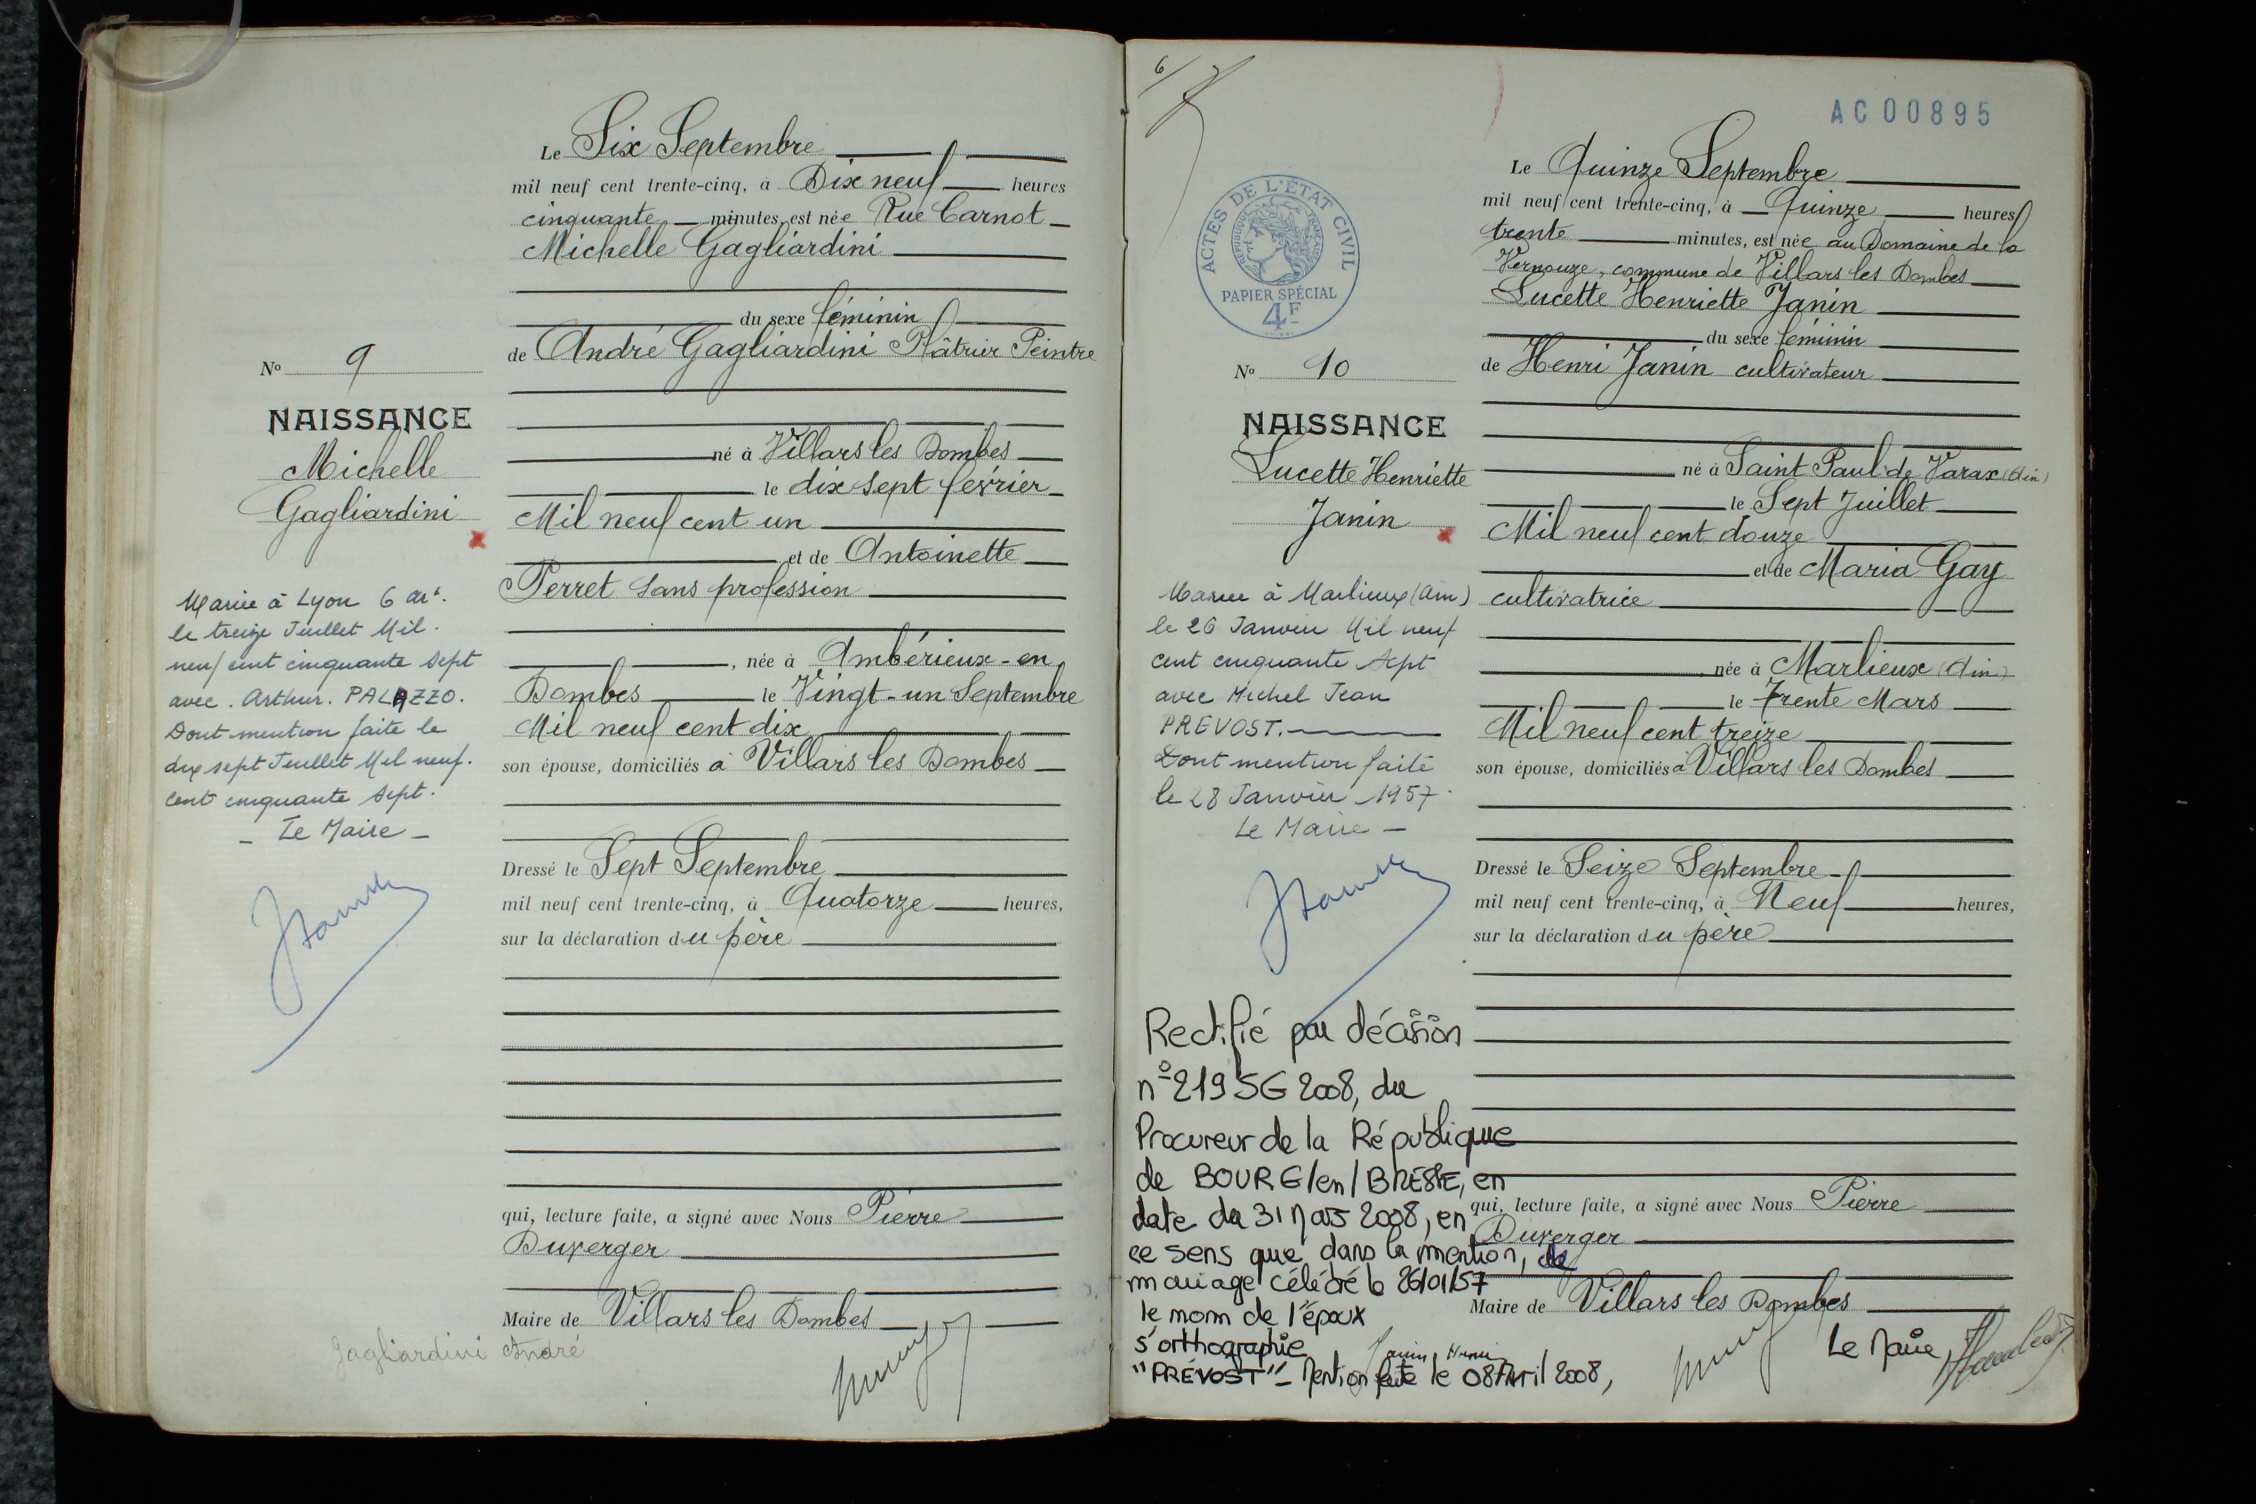 Le Six Septembre
mil neuf cent trente-cinq, à Dix neuf heures
cinquante minutes, est née Rue Carnot
Michelle Gagliardini
du sexe féminin
de André Gagliardini Plâtrier Peintre
No 9
NAISSANCE
Michelle
Gagliardini
né à Villars les Dombes
le dix sept février
Mil neuf cent un
et de Antoinette
Perret sans profession
, née à Ambérieux-en
Dombes le Vingt-un Septembre
Mil neuf cent dix
son épouse, domiciliés à Villars les Dombes
Mariée à Lyon 6 art.
le treize Juillet Mil.
neuf cent cinquante sept
avec. Arthur. PALAZZO.
Dont mention faite le
dix sept Juillet Mil neuf.
cent cinquante sept.
- Le Maire -
Dressé le Sept Septembre
mil neuf cent trente-cinq, à Quatorze heures,
sur la déclaration du père
qui, lecture faite, a signé avec Nous Pierre
Duverger
Maire de Villars les Dombes
Gagliardini André
6/
AC00895
ACTES DE L'ÉTAT CIVIL
RÉPUBLIQUE FRANÇAISE
PAPIER SPÉCIAL
4F
Le Quinze Septembre
mil neuf cent trente-cinq, à Quinze heures
trente minutes, est née au Domaine de la
Vernouze, commune de Villars les Dombes
Lucette Henriette Janin
du sexe féminin
de Henri Janin cultivateur
No 10
NAISSANCE
Lucette Henriette
Janin
né à Saint Paul de Varax (Ain)
le Sept Juillet
Mil neuf cent douze
et de Maria Gay
cultivatrice
née à Marlieux (Ain)
le Trente Mars
Mil neuf cent treize
son épouse, domiciliés à Villars les Dombes
Mariée à Marlieux (Ain)
le 26 Janvier Mil neuf
cent cinquante sept
avec Michel Jean
PREVOST.
Dont mention faite
le 28 Janvier 1957.
Le Maire -
Dressé le Seize Septembre
mil neuf cent trente-cinq, à Neuf heures,
sur la déclaration du père
Rectifié par décision
n° 219 SG 2008, du
Procureur de la République
de BOURG/en/BRESSE, en
date du 31 Mars 2008, en
ce sens que dans la mention, de
mariage célébré le 26/01/57
le nom de l'époux
s'orthographie
"PRÉVOST" - Mention faite le 08 Avril 2008,
Le Maire,
qui, lecture faite, a signé avec Nous Pierre
Duverger
Maire de Villars les Dombes
Janin Henri